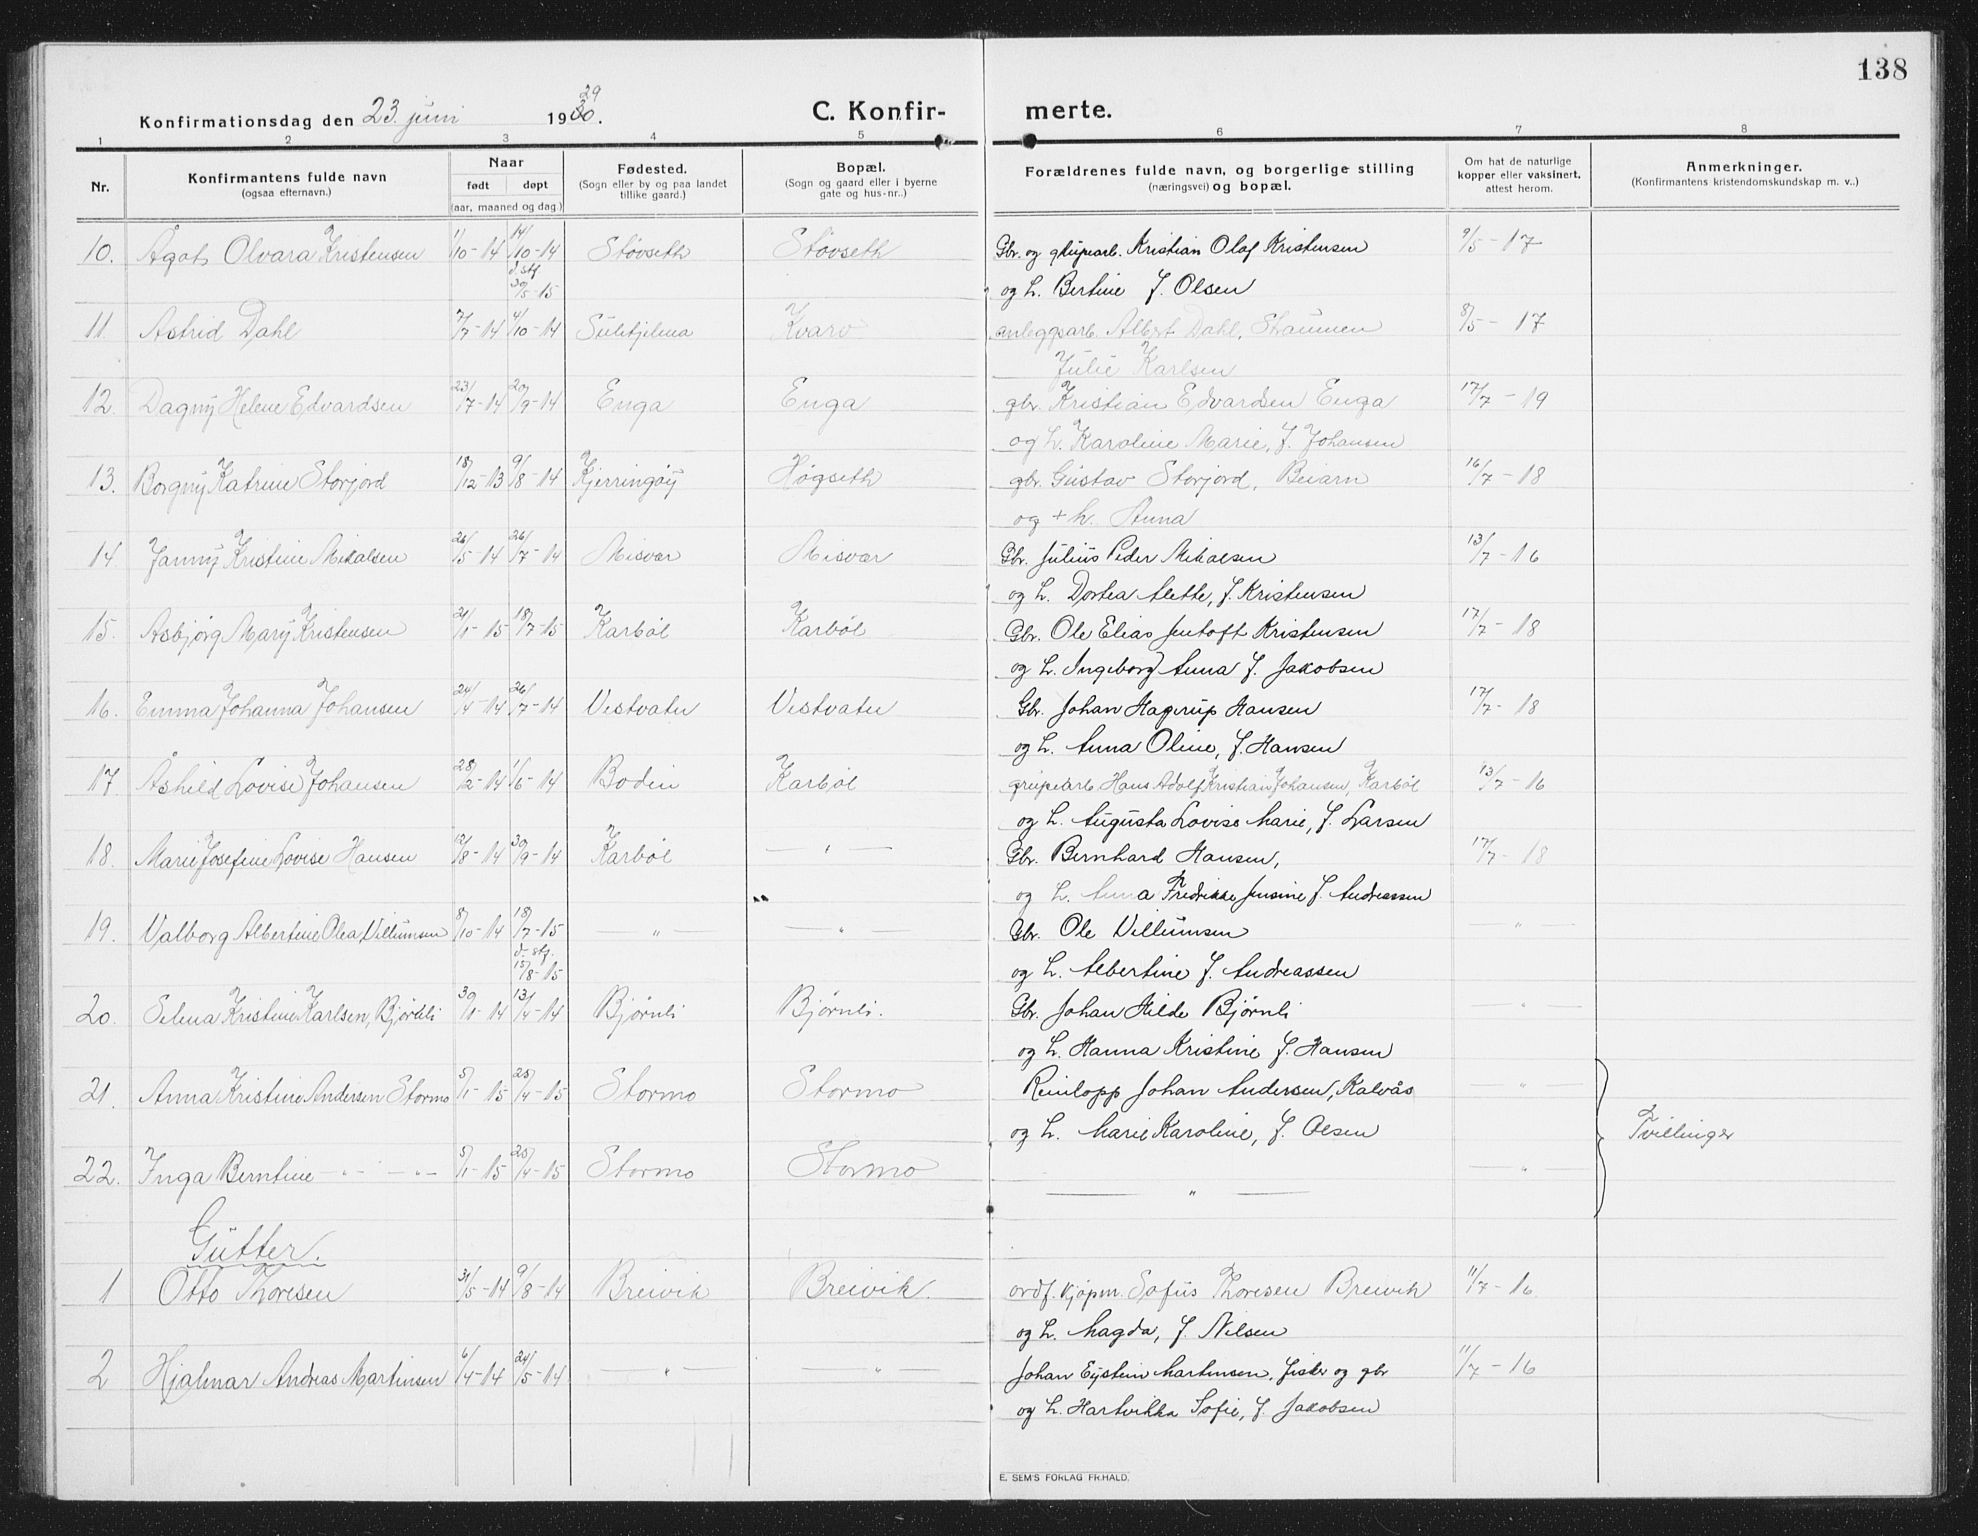 138
Konfirmationsdag den 23. juni 1930. 29
C. Konfir- merte.
1 2 3 4 5 6 7 8
Nr.
Konfirmantens fulde navn
(ogsaa efternavn.)
Naar
født døpt
(aar, maaned og dag.)
Fødested.
(Sogn eller by og paa landet
tillike gaard.)
Bopæl.
(Sogn og gaard eller i byerne
gate og hus-nr..)
Forældrenes fulde navn, og borgerlige stilling
(næringsvei) og bopæl.
Om hat de naturlige
kopper eller vaksinert,
attest herom.
Anmerkninger.
(Konfirmantens kristendomskundskap m. v..)
10. Ågot Olvara Kristensen 1/10-14 14/10-14 Støvseth Støvseth Gbr. og grupearb. Kristian Olaf Kristensen 9/5-17
d. stf. 30/5-15 og h. Bertine f. Olsen
11. Astrid Dahl 7/7-14 4/10-14 Sulitjelma Kvarv anleggsarb. Albert Dahl, Straumen 8/5-17
Julie Karlsen
12. Dagny Helene Edvardsen 23/7-14 20/9-14 Enga Enga gbr. Kristian Edvardsen Enga 17/7-19
og h. Karoline Marie, f. Johansen
13. Borgny Katrine Storjord 18/12-13 9/8-14 Kjerringøy Høgseth gbr. Gustav Storjord, Beiarn 16/7-18
og + h. Anna
14. Janny Kristine Mikalsen 26/5-14 26/7-14 Misvær Misvær Gbr. Julius Peder Mikalsen 13/7-16
og h. Dortea Alette, f. Kristensen
15. Asbjørg Mary Kristensen 21/1-15 18/7-15 Karbøl Karbøl Gbr. Ole Elias Jentoft Kristensen 17/7-18
og h. Ingeborg Anna f. Jakobsen
16. Emma Johanna Johansen 24/4-14 26/7-14 Vestvatn Vestvatn Gbr. Johan Hagerup Hansen 17/7-18
og h. Anna Oline, f. Hansen
17. Åshild Lovise Johansen 28/2-14 1/6-14 Bodin Karbøl grupearb Hans Adolf Kristian Johansen, Karbøl 13/7-16
og h. Augusta Lovise Marie, f. Larsen
18. Marie Josefine Lovise Hansen 12/8-14 30/9-14 Karbøl — " — Gbr. Bernhard Hansen, 17/7-18
og h. Anna Fredrikke Jensine f. Andreassen
19. Valborg Albertine Olea Villumsen 8/10-14 18/7-15 — " — — " — Gbr. Ole Villumsen — " —
d. stf. 15/8-15 og h. Albertine f. Andreassen
20. Selma Kristine Karlsen, Bjørnli 30/1-14 13/4-14 Bjørnli Bjørnli. Gbr. Johan Hilde Bjørnli — " —
og h. Hanna Kristine f. Hansen
21. Anna Kristine Andersen Stormo 5/1-15 25/4-15 Stormo Stormo Reinlopp Johan Andersen, Kalvås — " —
og h. Marie Karoline, f. Olsen Tvillinger
22. Inga Berntine — " — " — 5/1-15 25/4-15 Stormo Stormo — " — — " —
Gutter.
1 Otto Thoresen 31/5-14 9/8-14 Breivik Breivik. ordf. kjøpm. Sofus Thoresen Breivik 11/7-16
og h. Magda, f. Nilsen
2 Hjalmar Andreas Martinsen 6/4-14 24/5-14 — " — — " — Johan Eystein Martinsen, fisker og gbr 11/7-16
og h. Hartvikka Sofie, f. Jakobsen
E. SEM'S FORLAG FR.HALD.